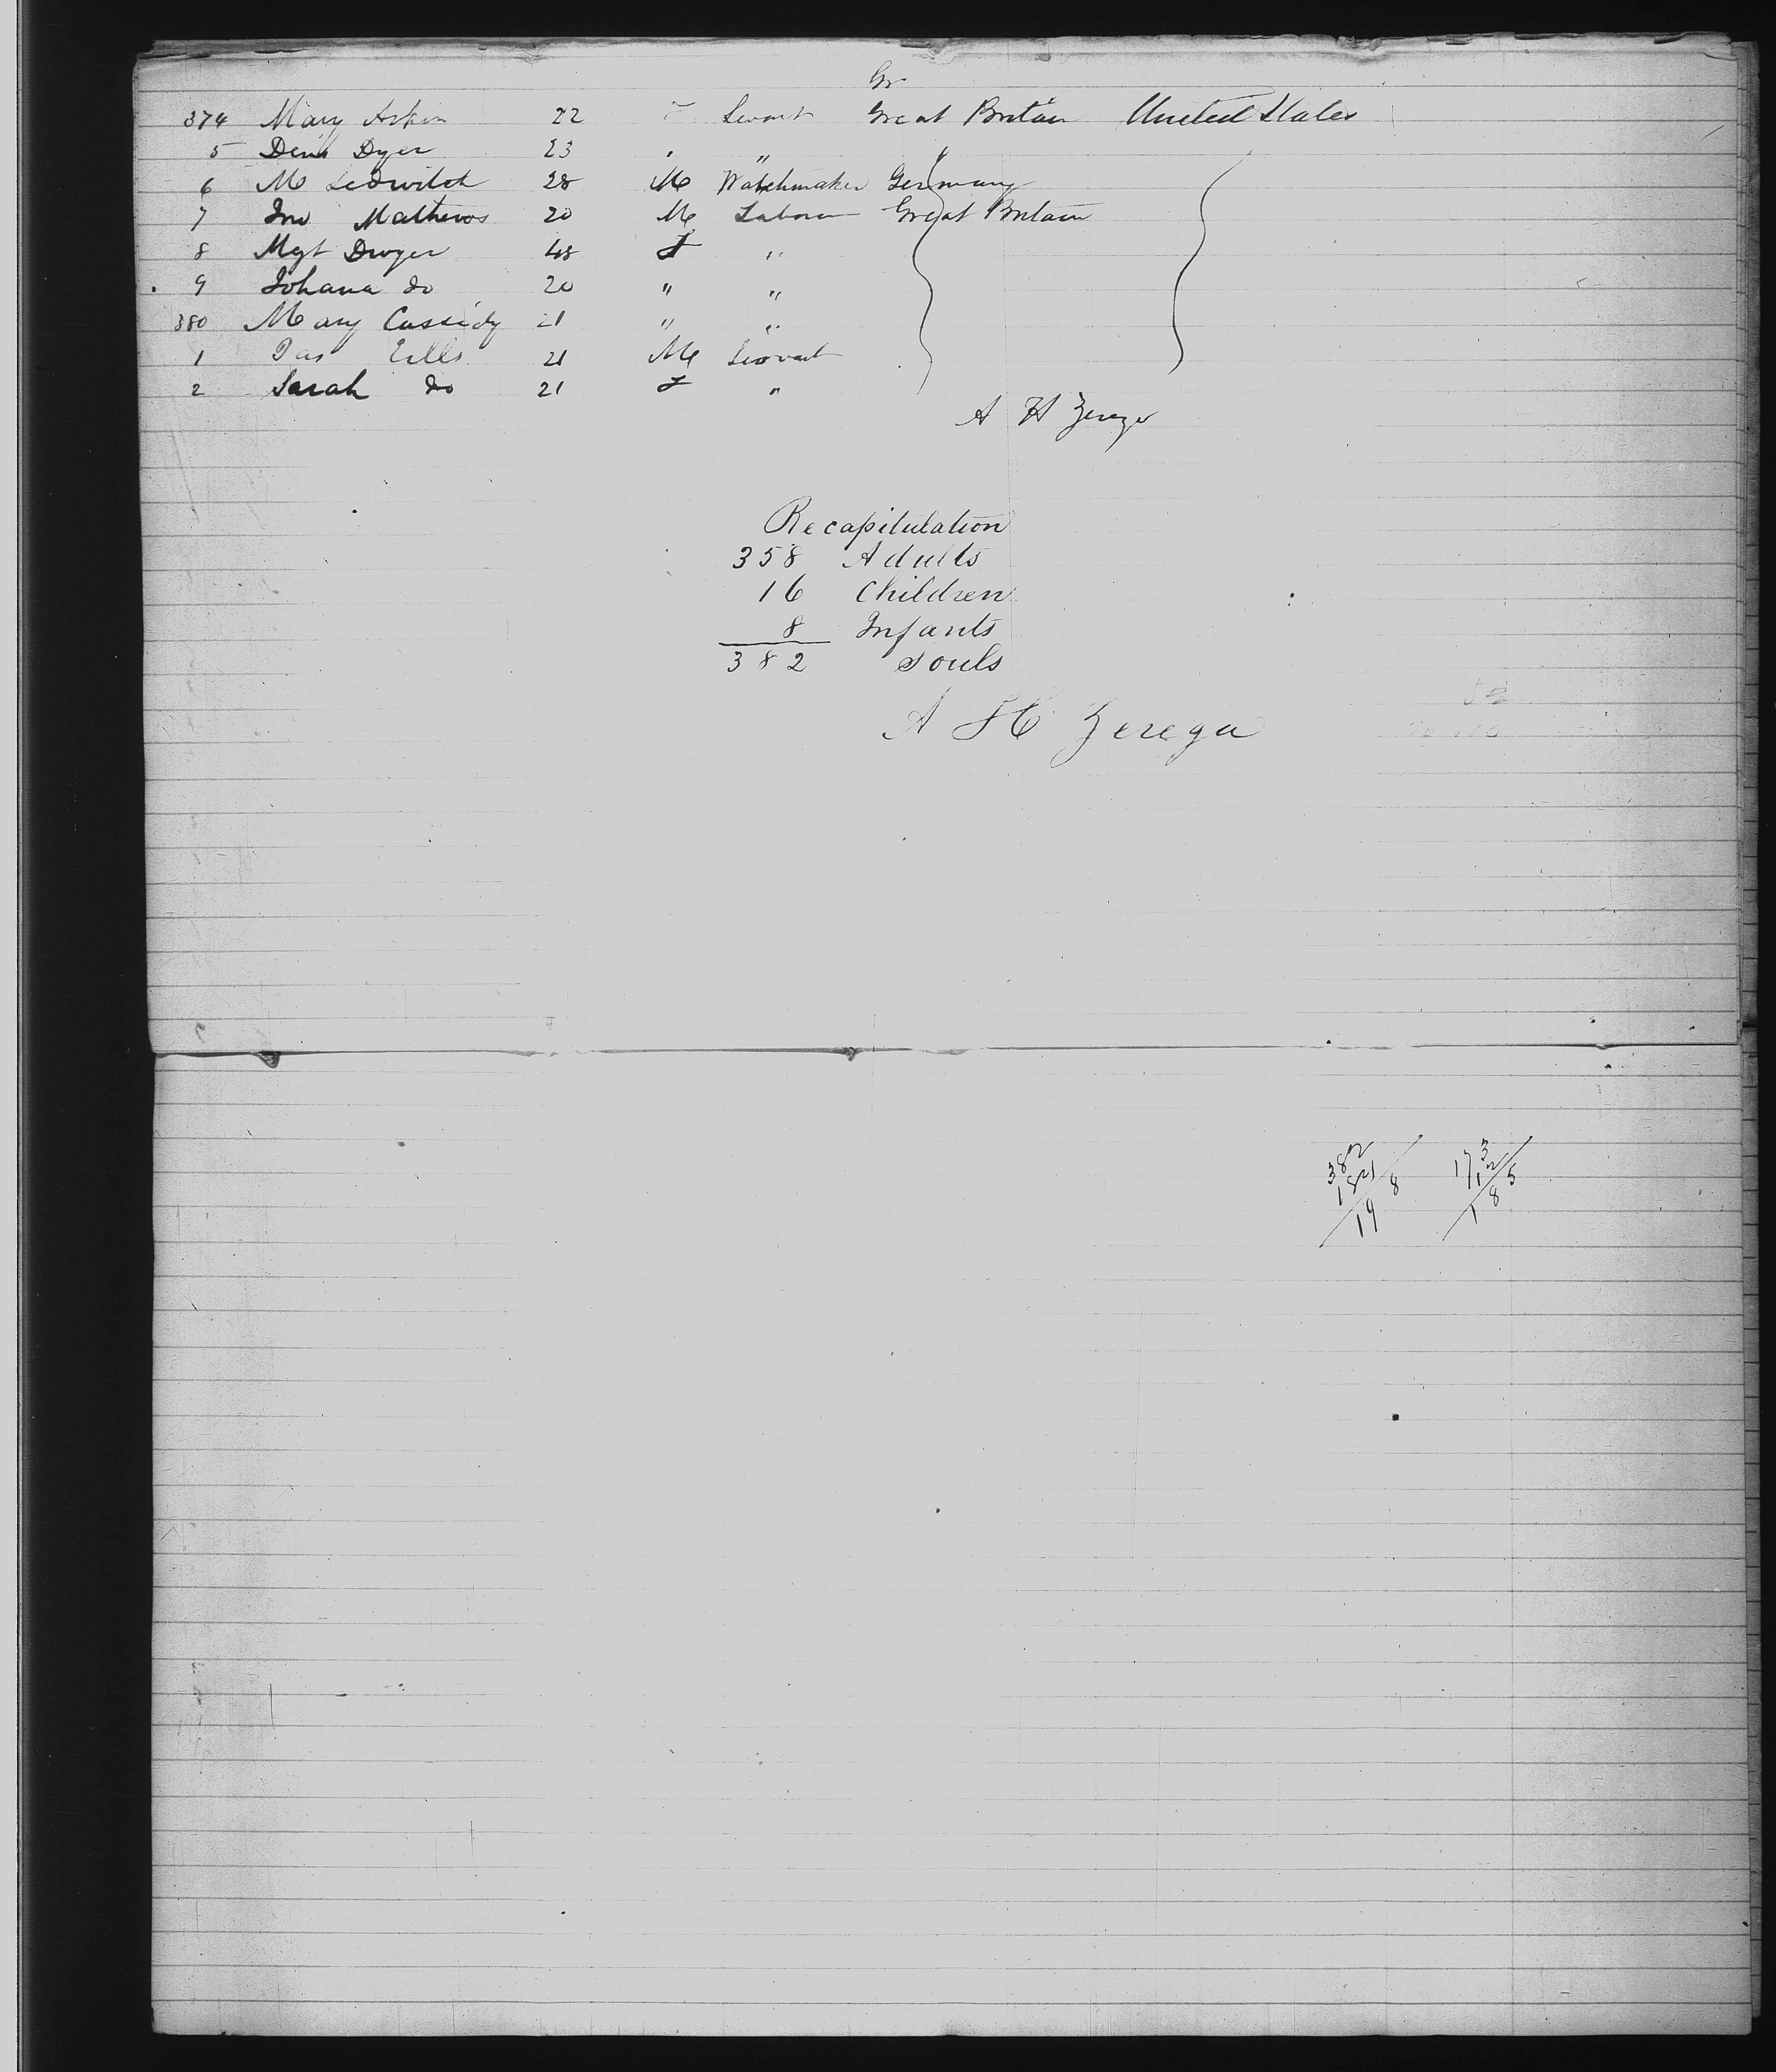 Gr
374 Mary Askin 22 F Servant Great Britain United States
5 Denis Dyer 23 " "
6 M Ledwitch 28 M Watchmaker Germany
7 Jno Mathews 20 M Laborer Great Britain
8 Mgt Dwyer 48 F "
9 Johana do 20 " "
380 Mary Cassidy 21 " "
1 Jas 21 M Servant
2 Sarah do 21 F "
A H Zerega
Recapitulation
358 Adults
16 Children
8 Infants
382 Souls
A H Zerega
382 173
12
198 185